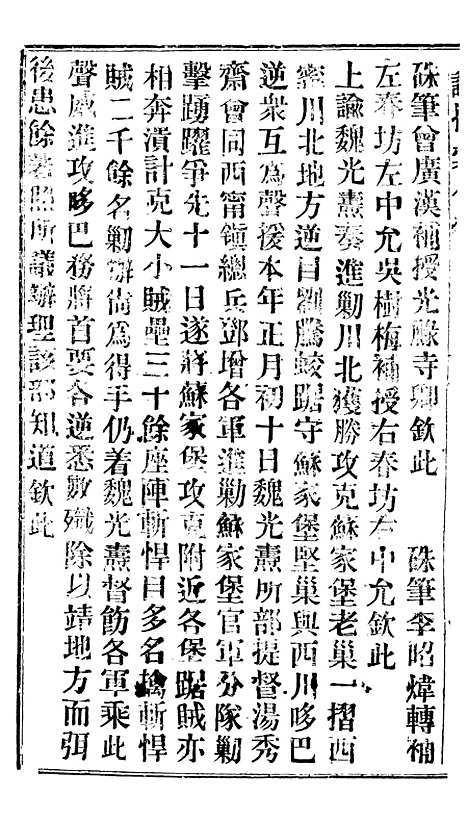 硃筆曾廣漢補授光祿寺卿欽此　　硃筆李昭煒轉補
左春坊左中允吳樹梅補授右春坊右中允欽此
上諭魏光燾奏進勦川北獲勝攻克蘇家堡老巢一摺西
寧川北地方逆目劉騰蛟踞守蘇家堡堅巢與西川哆巴
逆衆互爲聲援本年正月初十日魏光燾所部提督湯秀
齋會同西甯鎮總兵鄧增各軍進勦蘇家堡官軍分隊勦
擊踴躍爭先十一日遂將蘇家堡攻克附近各堡踞賊亦
相奔潰計克大小賊壘三十餘座陣斬悍目多名擒斬悍
賊二千餘名勦辦尙爲得手仍着魏光燾督飭各軍乘此
聲威進攻哆巴務將首要各逆悉數殲除以靖地方而弭
後患餘著照所議辦理該部知道欽此